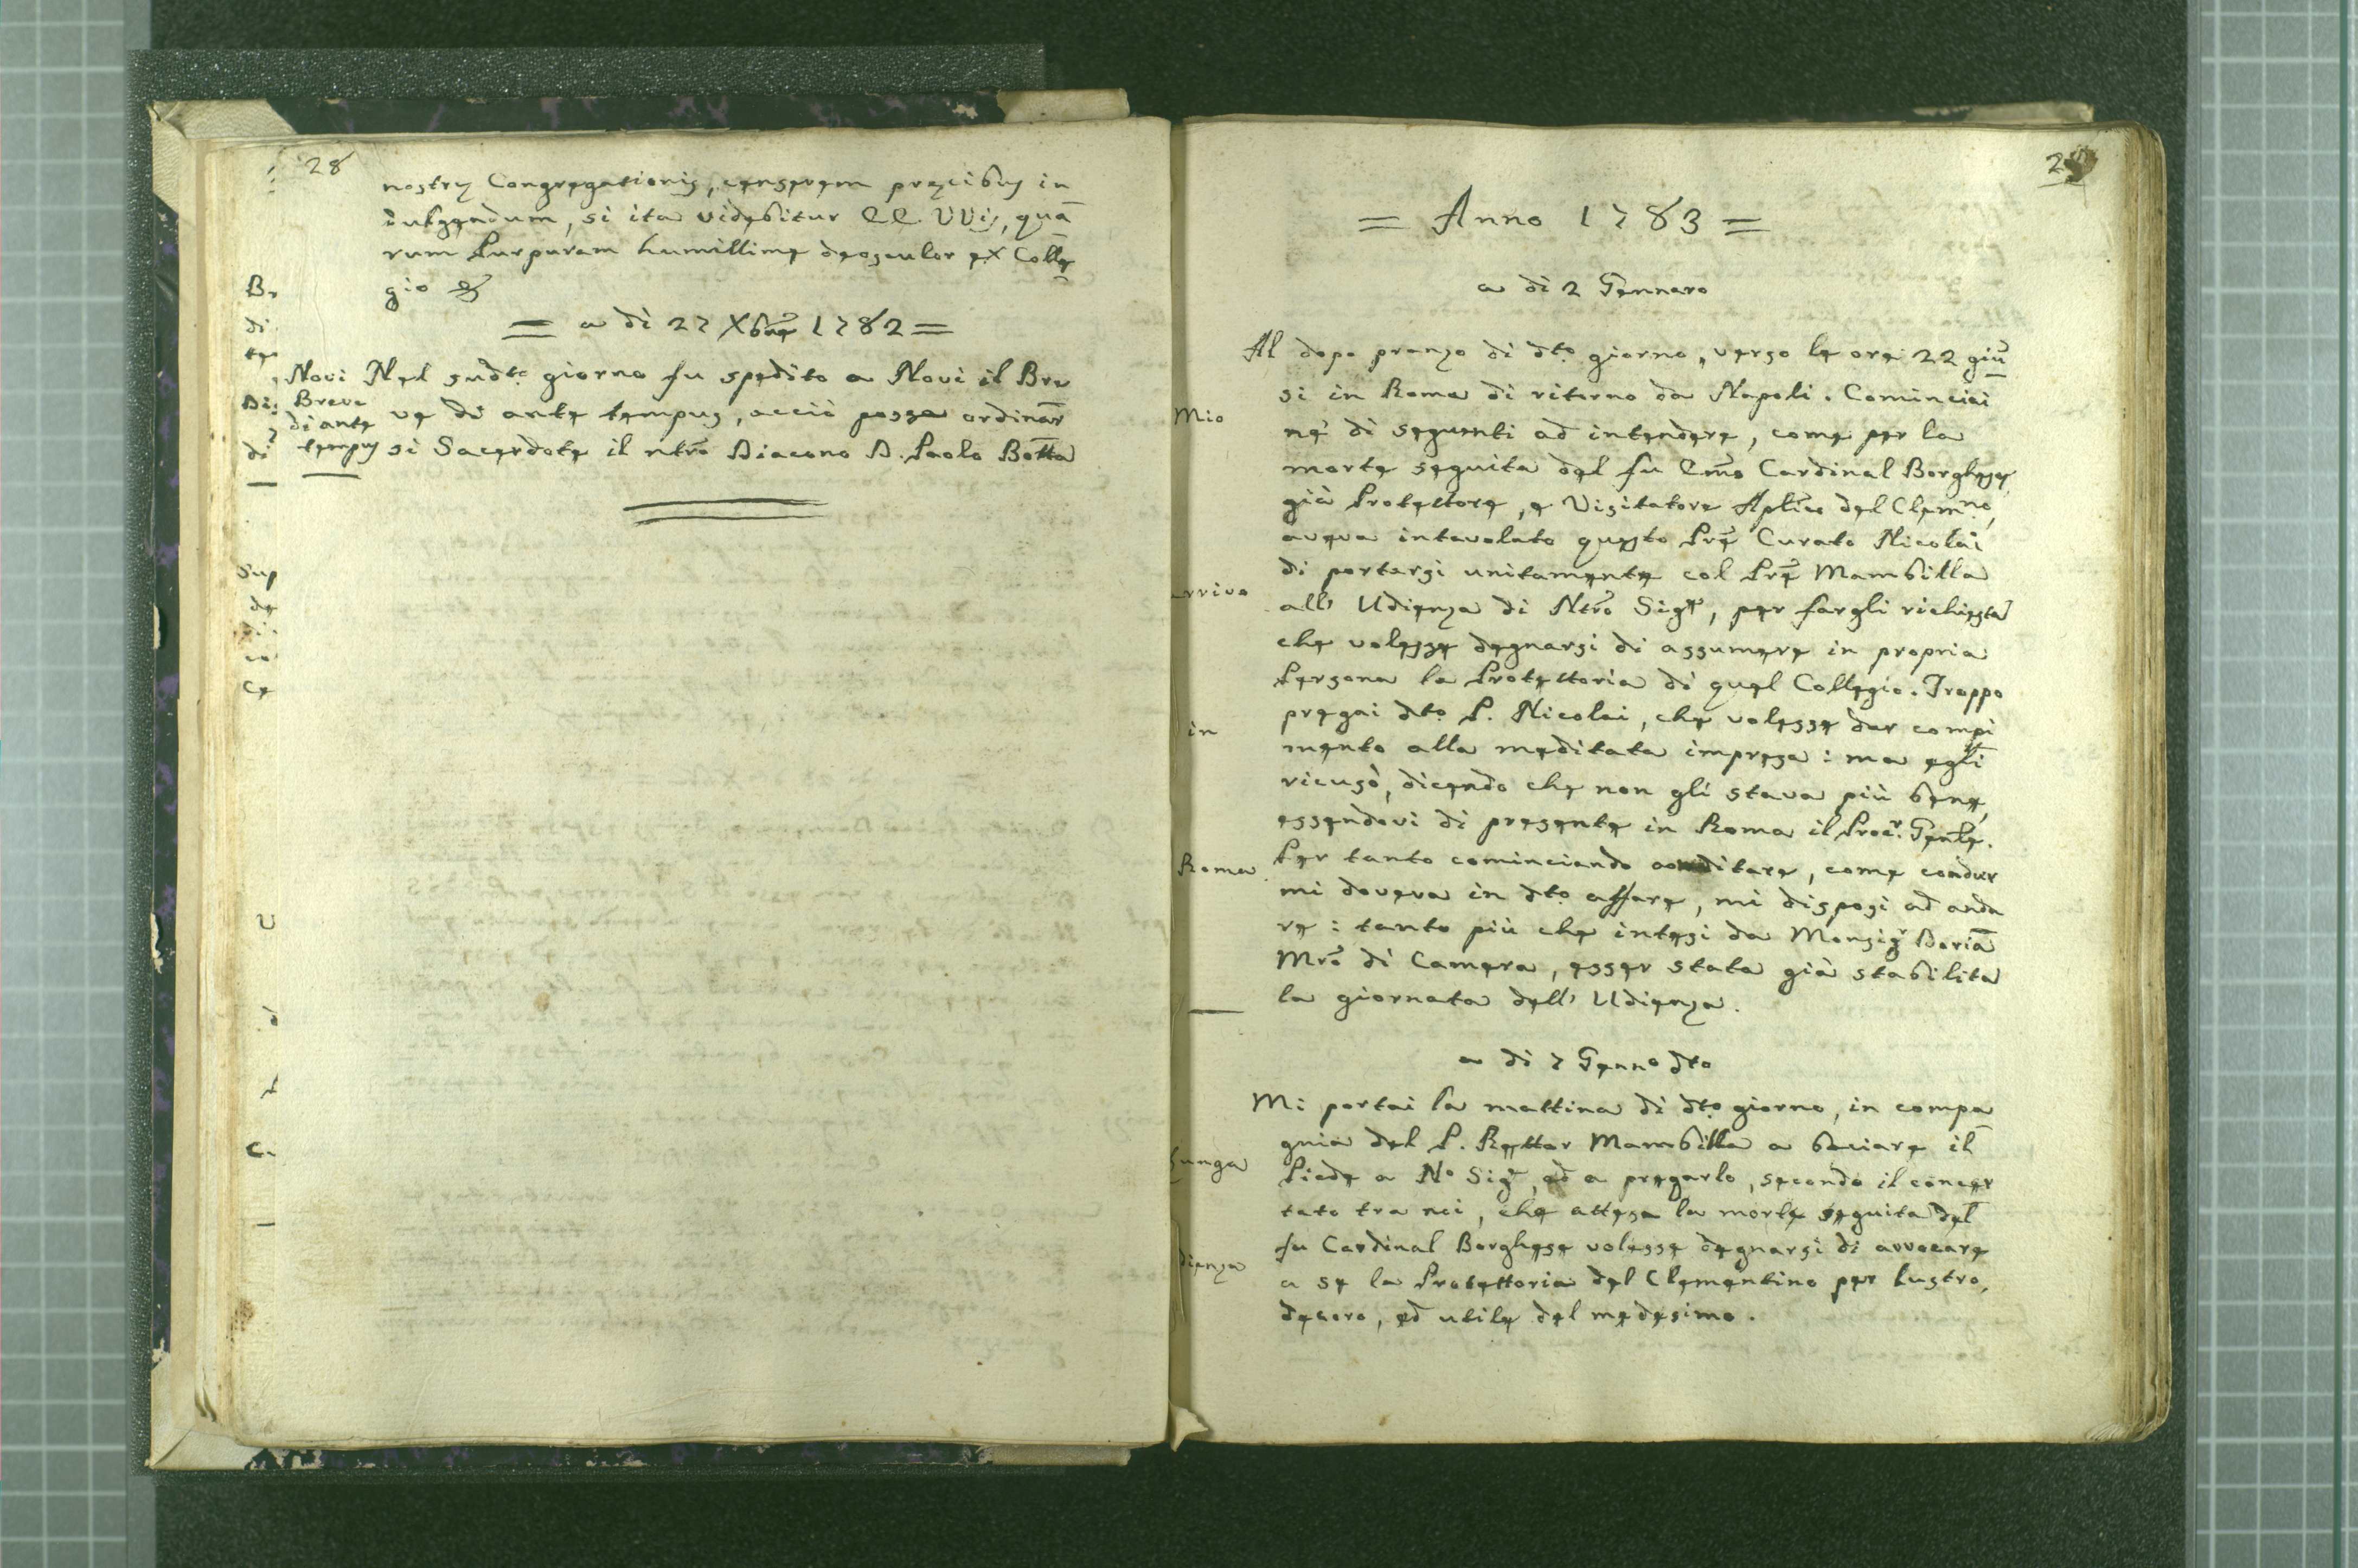 28
nostrę Congregationis, censerem pręcibus in
dulgendum, si ita videbitur EE. VVis, quā
rum Purpuram humillime deosculor ex Colle
gio &
= a dì 27 Xbre 1782 =
Novi Nel sudto giorno fu spedito a Novi il Bre
Breve
di ante
tempus
ve di ante tempus, acciò possa ordinar
si Sacerdote il ntro Diacono D. Paolo Botta
29
= Anno 1783 =
a di 2 Gennaro
Al dopo pranzo di dto giorno, verso le ore 22 giū
si in Roma di ritorno da Napoli. Cominciai
Mio
ne' dì seguenti ad intendere, come per la
morte seguita del fu Emo Cardinal Borghese,
già Protettore, e Visitatore Aplico del Clemno,
aveva intavolato questo Pre Curato Nicolai
di portarsi unitamente col Pre Mambilla
arrivo
all' Udienza di Ntro Sigre, per fargli richiesta
che volesse degnarsi di assumere in propria
Persona la Protettoria di quel Collegio. Troppo
pregai dto P. Nicolai, che volesse dar compi
in
mento alla meditata impresa : ma egli
ricusò, dicendo che non gli stava più bene,
essendovi di presente in Roma il Procr. Genle.
Roma
Per tanto cominciando a meditare, come condur
mi doveva in dto affare, mi disposi ad anda
re : tanto più che intesi da Monsigr Doria
Mro di Camera, esser stata già stabilita
la giornata dell' Udienza.
a di 7 Genno dto
Mi portai la mattina di dto giorno, in compa
gnia del P. Rettor Mambilla a baciare il
Piede a No Sigr, ed a pregarlo, secondo il concer
tato tra noi, che attesa la morte seguita del
fu Cardinal Borghese volesse degnarsi di avvocare
dienza
a se la Protettoria del Clementino per lustro,
decoro, ed utile del medesimo.